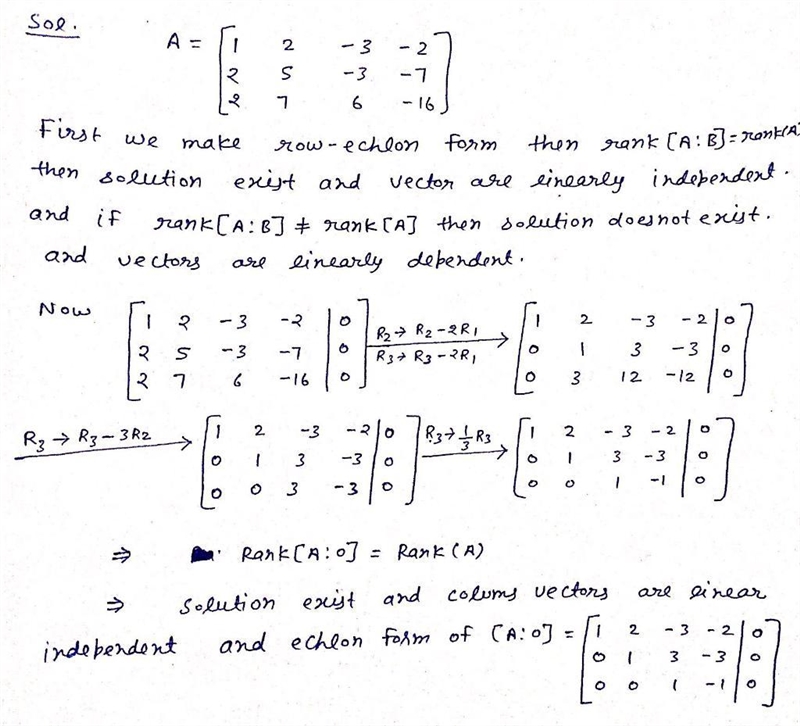 Sol.
A = [1 2 -3 -2
2 5 -3 -7
2 7 6 -16]
First we make row-echlon form then rank[A:B]=rank(A)
then solution exist and vector are linearly independent.
and if rank[A:B] ≠ rank[A] then solution doesnot exist.
and vectors are linearly dependent.
Now [1 2 -3 -2 | 0
2 5 -3 -7 | 0
2 7 6 -16 | 0]
R2 → R2-2R1
R3 → R3-2R1
[1 2 -3 -2 | 0
0 1 3 -3 | 0
0 3 12 -12 | 0]
R3 → R3-3R2
[1 2 -3 -2 | 0
0 1 3 -3 | 0
0 0 3 -3 | 0]
R3 → 1/3 R3
[1 2 -3 -2 | 0
0 1 3 -3 | 0
0 0 1 -1 | 0]
⇒ Rank[A:0] = Rank(A)
⇒ solution exist and colums vectors are linear
independent and echlon form of [A:0] = [1 2 -3 -2 | 0
0 1 3 -3 | 0
0 0 1 -1 | 0]